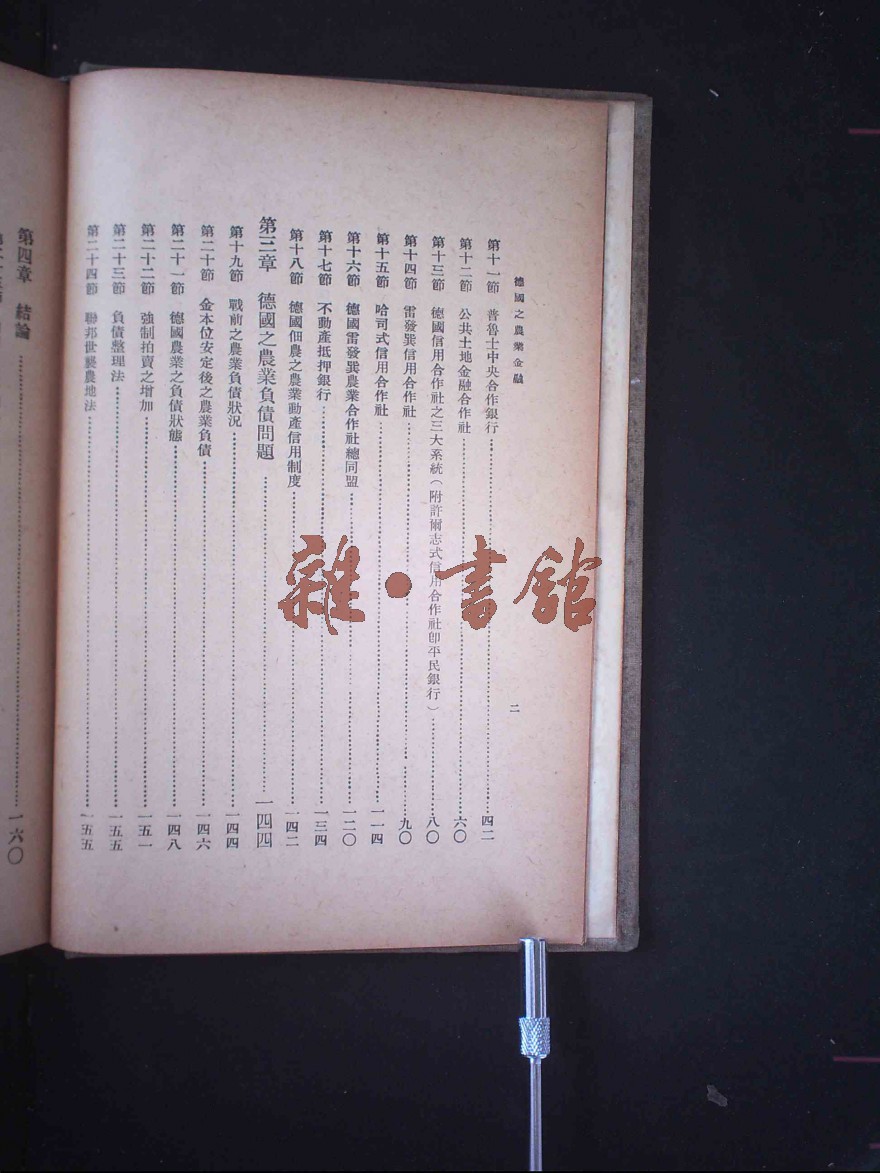 德國之農業金融
二
第十一節　普魯士中央合作銀行……四二
第十二節　公共土地金融合作社……六〇
第十三節　德國信用合作社之三大系統（附許爾志式信用合作社卽平民銀行）……八〇
第十四節　雷發巽信用合作社……九〇
第十五節　哈司式信用合作社……一一四
第十六節　德國雷發巽農業合作社總同盟……一二〇
第十七節　不動產抵押銀行……一三四
第十八節　德國佃農之農業動產信用制度……一四二
第三章　德國之農業負債問題……一四四
第十九節　戰前之農業負債狀況……一四四
第二十節　金本位安定後之農業負債……一四六
第二十一節　德國農業之負債狀態……一四八
第二十二節　強制拍賣之增加……一五一
第二十三節　負債整理法……一五五
第二十四節　聯邦世襲農地法……一五五
第四章　結論……一六〇
雜・書館